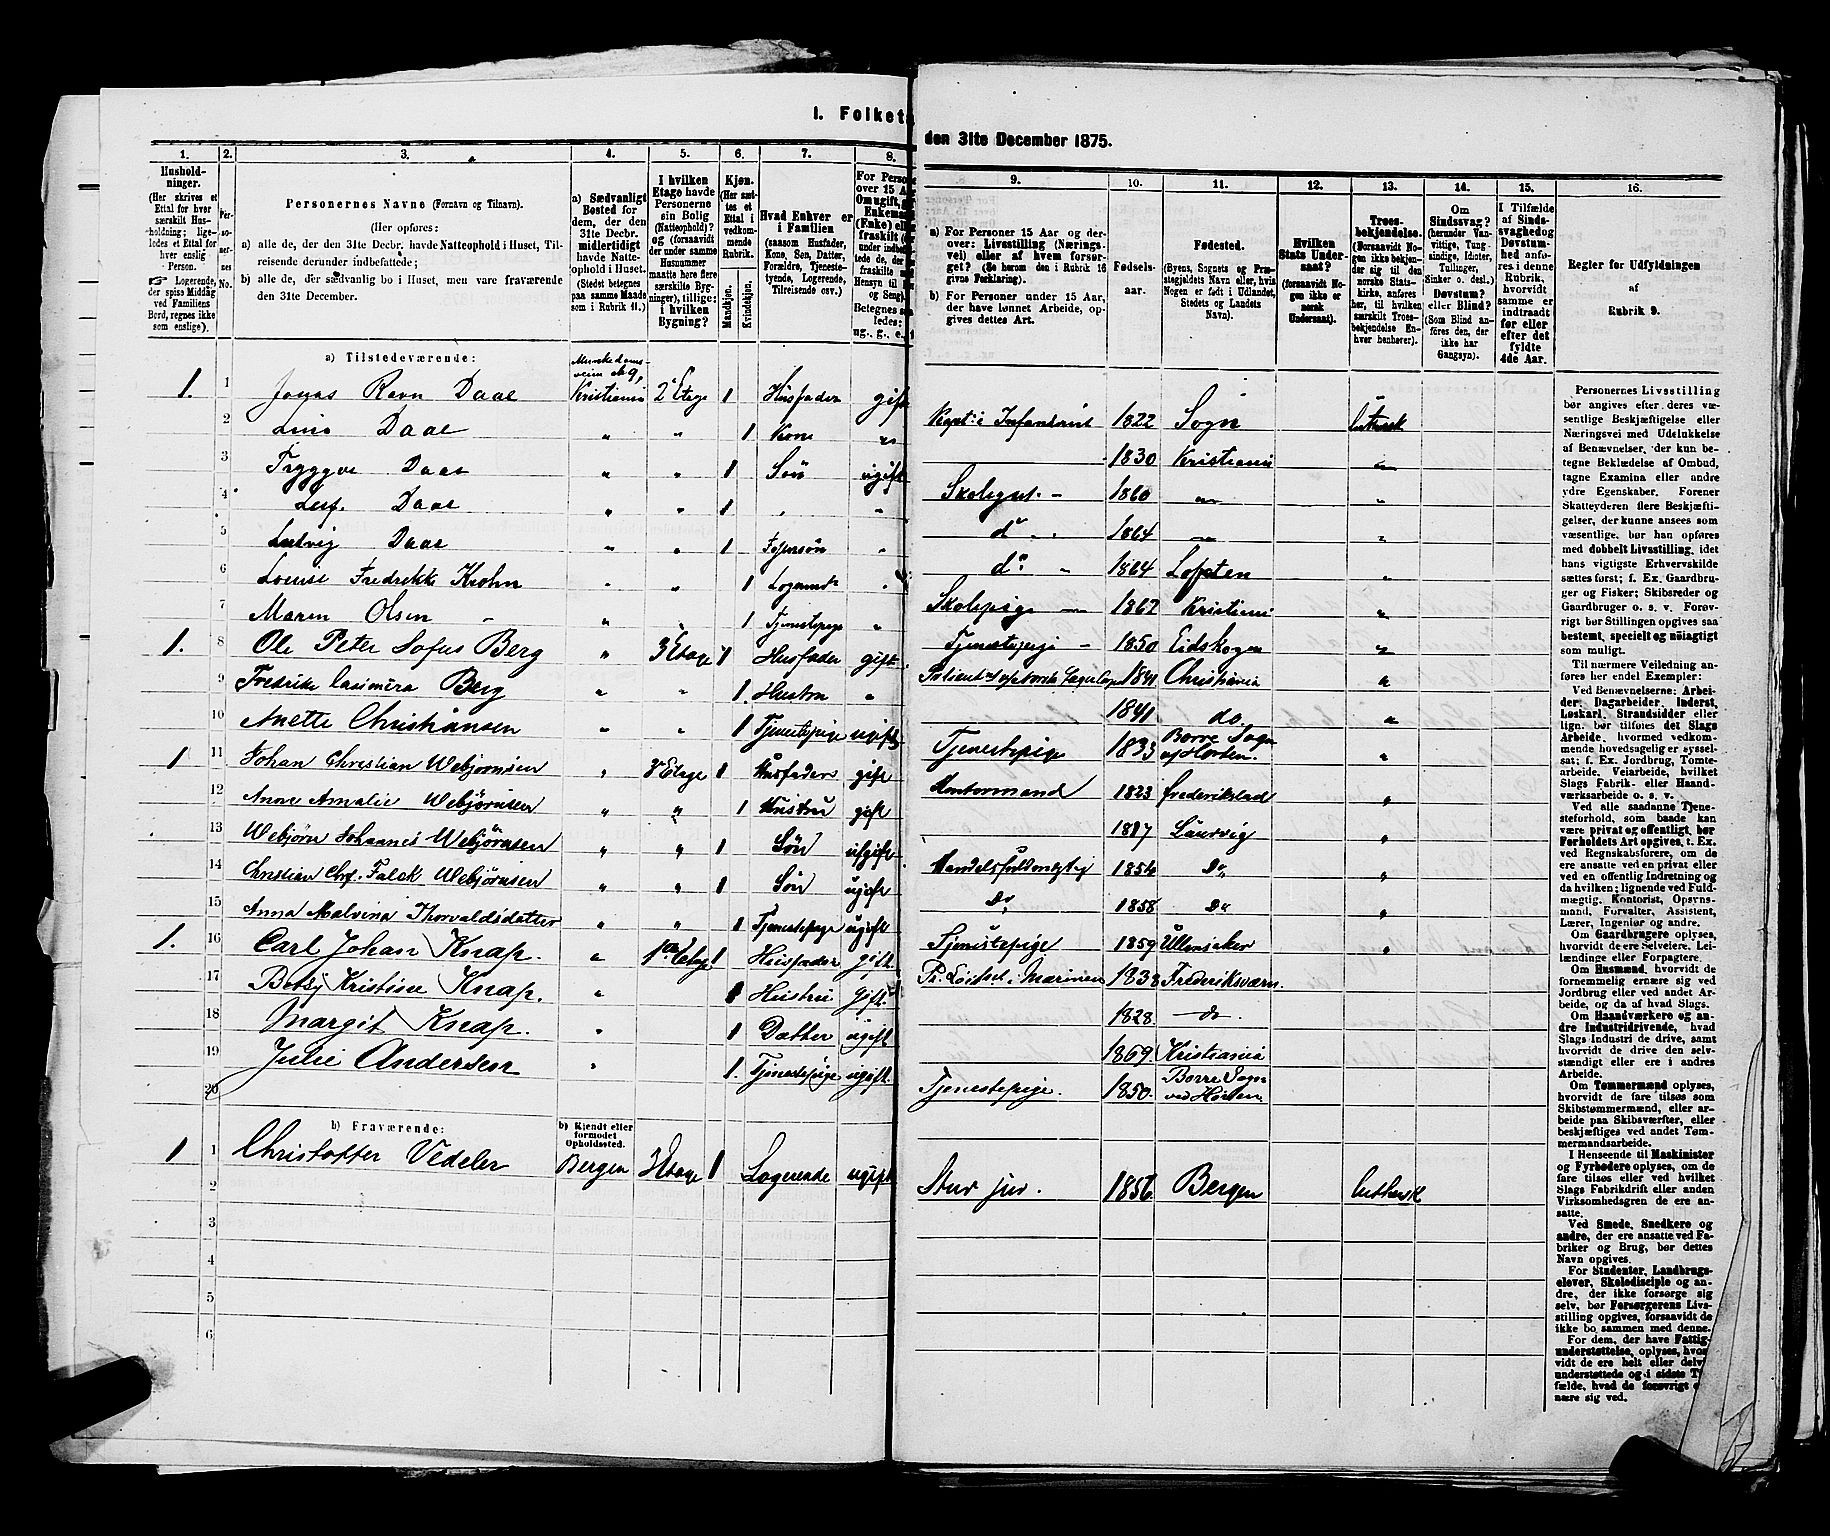 I. Folket
den 31te December 1875.
1. 2. 3. 4. 5. 6. 7. 8.
9. 10. 11. 12. 13. 14. 15. 16.
Hushold-
ninger.
(Her skrives et
Ettal for hver
særskilt Hus-
holdning; lige-
ledes et Ettal for
hver enslig
Person.
Logerende,
der spise Middag
ved Familiens
Bord, regnes ikke
som enslige).
Per-
so-
ner-
nes
No.
Personernes Navne (Fornavn og Tilnavn).
(Her opføres:
a) alle de, der den 31te Decbr. havde Natteophold i Huset, Til-
reisende derunder indbefattede;
b) alle de, der sædvanlig bo i Huset, men vare fraværende
den 31te December.
a) Sædvanligt
Bosted for
dem, der den
31te Decbr.
midlertidigt
havde Natte-
ophold i Huset.
(Stedet betegnes
paa samme Maade
som i Rubrik 11.)
I hvilken
Etage havde
Personerne
sin Bolig
(Natteophold)?
og (forsaavidt
der under samme
Husnummer
maatte høre flere
særskilte Byg-
ninger), tillige:
i hvilken
Bygning?
Kjøn.
(Her sæt-
tes et
Ettal i
vedkom-
mende
Rubrik.
Mandkjøn.
Kvindekjøn.
Hvad Enhver er
i Familien
(saasom Husfader,
Kone, Søn, Datter,
Forældre, Tjeneste-
tyende, Logerende,
Tilreisende osv.)
For Person
over 15 Aa
Om ugift, g
Enkema
(Enke) elle
fraskilt (d
under indbe
tede de, de
fraskilte
Hensyn til
og Seng).
Betegnes sa
ledes:
ug., g., e.,
a) For Personer 15 Aar og der-
over: Livsstilling (Nærings-
vei) eller af hvem forsør-
get? (Se herom den i Rubrik 16
givne Forklaring).
b) For Personer under 15 Aar,
der have lønnet Arbeide, op-
gives dettes Art.
Fødsels-
aar.
Fødested.
(Byens, Sognets og Præ-
stegjeldets Navn eller, hvis
Nogen er født i Udlandet,
Stedets og Landets
Navn).
Hvilken
Stats Under-
saat?
(forsaavidt No-
gen ikke er
norsk
Undersaat).
Troes-
bekjendelse.
(Forsaavidt No-
gen ikke bekjen-
der sig til den
norske Stats-
kirke, anføres
her, til hvilken
særskilt Troes-
bekjendelse En-
hver henhører).
Om
Sindssvag?
(herunder Van-
vittige, Tung-
sindige, Idioter,
Tullinger,
Sinker o. desl.)
Døvstum?
eller Blind?
(Som Blind an-
føres den, der
ikke har
Gangsyn).
I Tilfælde
af Sinds-
svaghed og
Døvstum-
hed anfø-
res i denne
Rubrik,
hvorvidt
samme er
indtraadt
før eller
efter det
fyldte
4de Aar.
Regler for Udfyldningen
af
Rubrik 9.
a) Tilstedeværende:
1. 1 Jonas Ravn Daae Kristiania 2 Etage 1 Husfader gift Kapt: i Infanteriet 1822 Sogn luthersk
2 Lina Daae „ „ 1 Kone „ 1830 Kristiania „
3 Tryggve Daae „ „ 1 Søn ugift Skolegut 1860 „ „
4 Leif Daae „ „ 1 „ do 1864 „ „
5 Ludvig Daae „ „ 1 „ do 1864 Lofoten „
6 Louise Fredrikke Krohn „ „ 1 Logerende „ Skolepige 1862 Kristiania „
7 Maren Olsen „ 1 Tjenestepige „ Tjenestepige 1850 Eidskogen „
1. 8 Ole Peter Sofus Berg „ 3 Etage 1 Husfader gift 1841 Christiania „
9 Fredrike Casimira Berg „ „ 1. Hustru „ 1841 do. „
10 Anette Christiansen „ „ 1 Tjenestepige ugift Tjenestepige 1833 Borre Sogn af Horten. „
1 11 Johan Christian Webjørnsen „ Etage 1 Husfader gift Kontormand 1823 Frederikstad „
12 Anne Amalie Webjørnsen „ „ 1 Hustru gift 1817 Laurvig „
13 Webjørn Johannes Webjørnsen „ „ 1 Søn ugift Handelsfuldmægtig 1854 Do „
14 Christian Chr. Falck Webjørnsen „ „ 1 Søn ugift Do 1858 Do „
15 Anna Malvina Thorvaldsdatter „ „ 1 Tjenestepige ugift Tjenestepige 1859 Ullensaker „
1. 16 Carl Johan Knap. „ 1 Etage 1 Husfader gift. Marinen 1838 Frederiksværn.
17 Betsy Kristine Knap. „ 1 Hustru Gift. 1828. do.
18 Margit Knap. „ 1 Datter ugift 1869. Kristiania
19 Julie Andersen „ 1. Tjenestepige ugift. Tjenestepige. 1850. Borre Sogn ved Horten.
20
b) Fraværende:
b) Kjendt eller
formodet
Opholdssted.
1 1 Christoffer Vedeler Bergen 3 Etage 1 Logerende ugift Stud jur. 1856. Bergen luthersk
2
3
4
5
6
Personernes Livsstilling
bør angives efter deres væ-
sentlige Beskjæftigelse eller
Næringsvei med Udelukkelse
af Benævnelser, der kun be-
tegne Beklædelse af Ombud,
tagne Examina eller andre
ydre Egenskaber. Forener
Skatteyderen flere Beskjæfti-
gelser, der kunne ansees som
væsentlige, bør han opføres
med dobbelt Livsstilling, idet
hans vigtigste Erhvervskilde
sættes først; f. Ex. Gaardbru-
ger og Fisker; Skibsreder og
Gaardbruger o. s. v. Forøv-
rigt bør Stillingen opgives saa
bestemt, specielt og nøiagtigt
som muligt.
Til nærmere Veiledning an-
føres her endel Exempler:
Ved Benævnelserne: Arbei-
der, Dagarbeider, Inderst,
Løskarl, Strandsidder eller
lign. bør tilføies det Slags
Arbeide, hvormed vedkom-
mende hovedsagelig er syssel-
sat; f. Ex. Jordbrug, Tomte-
arbeide, Veiarbeide, hvilket
Slags Fabrik- eller Haand-
værksarbeide o. s. v.
Ved alle saadanne Tjene-
steforhold, som baade kan
være privat og offentligt, bør
Forholdets Art opgives, t. Ex.
ved Regnskabsførere, om de
ere ansatte ved en privat eller
ved en offentlig Indretning og
da hvilken; lignende ved Fuld-
mægtig, Kontorist, Opsyns-
mand, Forvalter, Assistent,
Lærer, Ingeniør og andre.
Om Gaardbrugere oplyses,
hvorvidt de ere Selveiere, Lei-
lændinge eller Forpagtere.
Om Husmænd, hvorvidt de
fornemmelig ernære sig ved
Jordbrug eller ved andet Ar-
beide, og da af hvad Slags.
Om Haandværkere og an-
dre Industridrivende, hvad
Slags Industri de drive, samt
hvorvidt de drive den selv-
stændigt eller ere i andres
Arbeide.
Om Tømmermænd oplyses,
hvorvidt de fare tilsøs som
Skibstømmermænd, eller ar-
beide paa Skibsværfter, eller
beskjæftiges ved andet Tøm-
mermandsarbeide.
I Henseende til Maskinister
og Fyrbødere oplyses, om de
fare tilsøs eller ved hvilket
Slags Fabrikdrift eller anden
Virksomhedsgren de ere an-
satte.
Ved Smede, Snedkere og
andre, der ere ansatte ved Fa-
briker og Brug, bør dettes
Navn opgives.
For Studenter, Landbrugs-
elever, Skoledisciple og an-
dre, der ikke forsørge sig
selv, bør Forsørgerens Livs-
stilling opgives, forsaavidt de
ikke bo sammen med denne.
For dem, der have Fattig-
understøttelse, oplyses, hvor-
vidt de ere helt eller delv
understøttede og i sidste T
fælde, hvad de forøvrigt
nære sig ved.